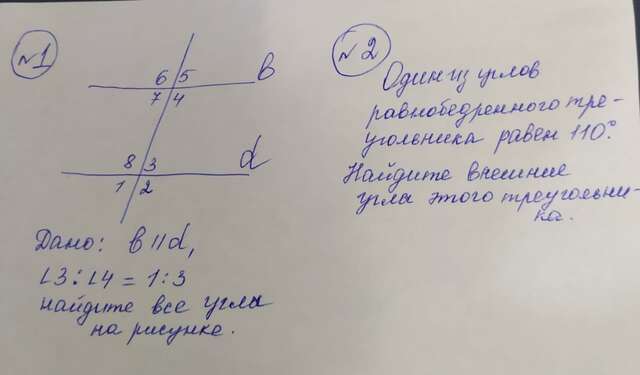 №1
6 5 в
7 4
8 3 d
1 2
Дано: в || d,
∠3 : ∠4 = 1:3
найдите все углы
на рисунке.
№2
Один из углов
равнобедренного тре-
угольника равен 110°.
Найдите внешние
угла этого треугольни-
ка.